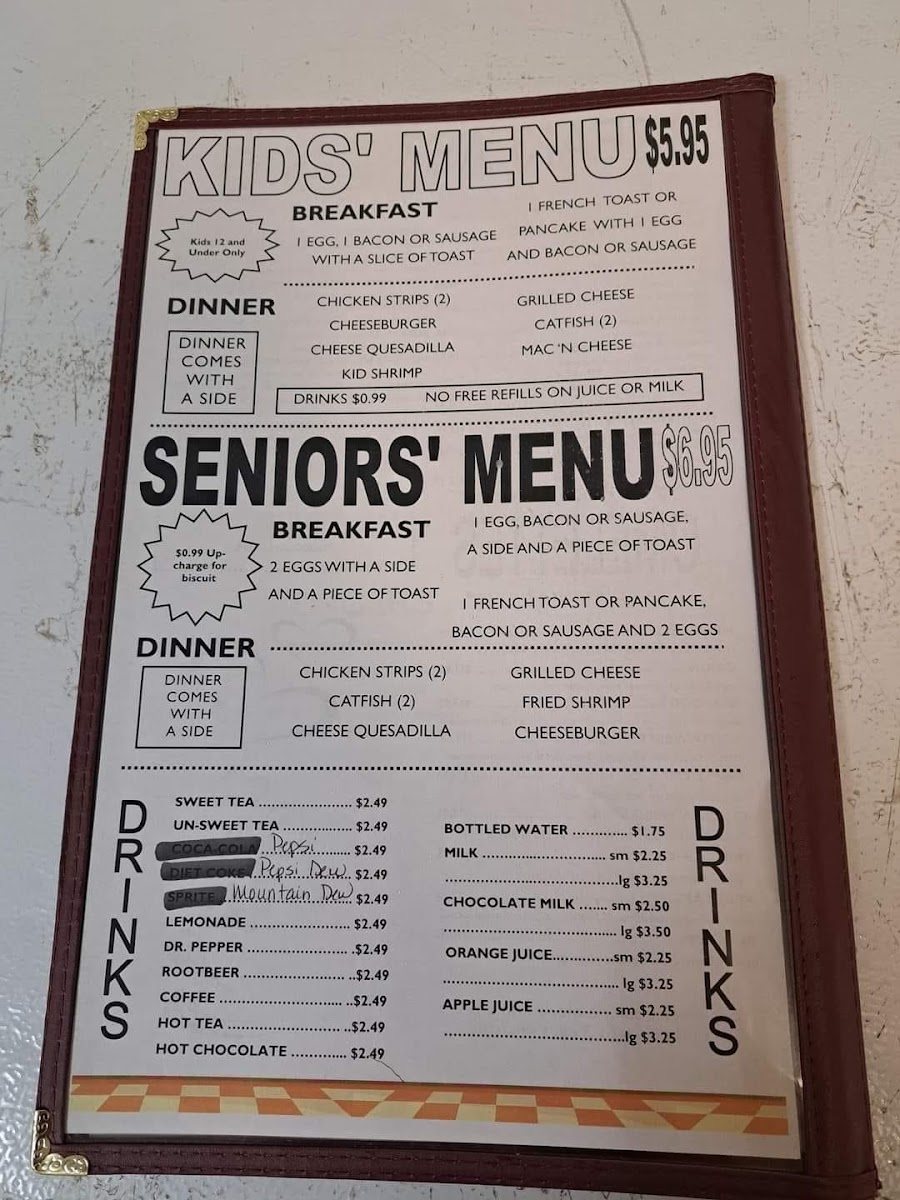 KIDS' MENU $5.95
Kids 12 and
Under Only
BREAKFAST
1 EGG, 1 BACON OR SAUSAGE
WITH A SLICE OF TOAST
1 FRENCH TOAST OR
PANCAKE WITH 1 EGG
AND BACON OR SAUSAGE
DINNER
DINNER
COMES
WITH
A SIDE
CHICKEN STRIPS (2)
CHEESEBURGER
CHEESE QUESADILLA
KID SHRIMP
GRILLED CHEESE
CATFISH (2)
MAC 'N CHEESE
DRINKS $0.99 NO FREE REFILLS ON JUICE OR MILK
SENIORS' MENU $6.95
$0.99 Up-
charge for
biscuit
BREAKFAST
2 EGGS WITH A SIDE
AND A PIECE OF TOAST
1 EGG, BACON OR SAUSAGE,
A SIDE AND A PIECE OF TOAST
1 FRENCH TOAST OR PANCAKE,
BACON OR SAUSAGE AND 2 EGGS
DINNER
DINNER
COMES
WITH
A SIDE
CHICKEN STRIPS (2)
CATFISH (2)
CHEESE QUESADILLA
GRILLED CHEESE
FRIED SHRIMP
CHEESEBURGER
DRINKS
SWEET TEA ...................... $2.49
UN-SWEET TEA ................ $2.49
COCA-COLA Pepsi ........ $2.49
DIET COKE Pepsi Dew $2.49
SPRITE Mountain Dew $2.49
LEMONADE ......................... $2.49
DR. PEPPER ..........................$2.49
ROOTBEER ..........................$2.49
COFFEE ...............................$2.49
HOT TEA .............................$2.49
HOT CHOCOLATE ............. $2.49
BOTTLED WATER ............. $1.75
MILK ............................. sm $2.25
.........................................lg $3.25
CHOCOLATE MILK ....... sm $2.50
......................................... lg $3.50
ORANGE JUICE..............sm $2.25
......................................... lg $3.25
APPLE JUICE .................. sm $2.25
.........................................lg $3.25
DRINKS